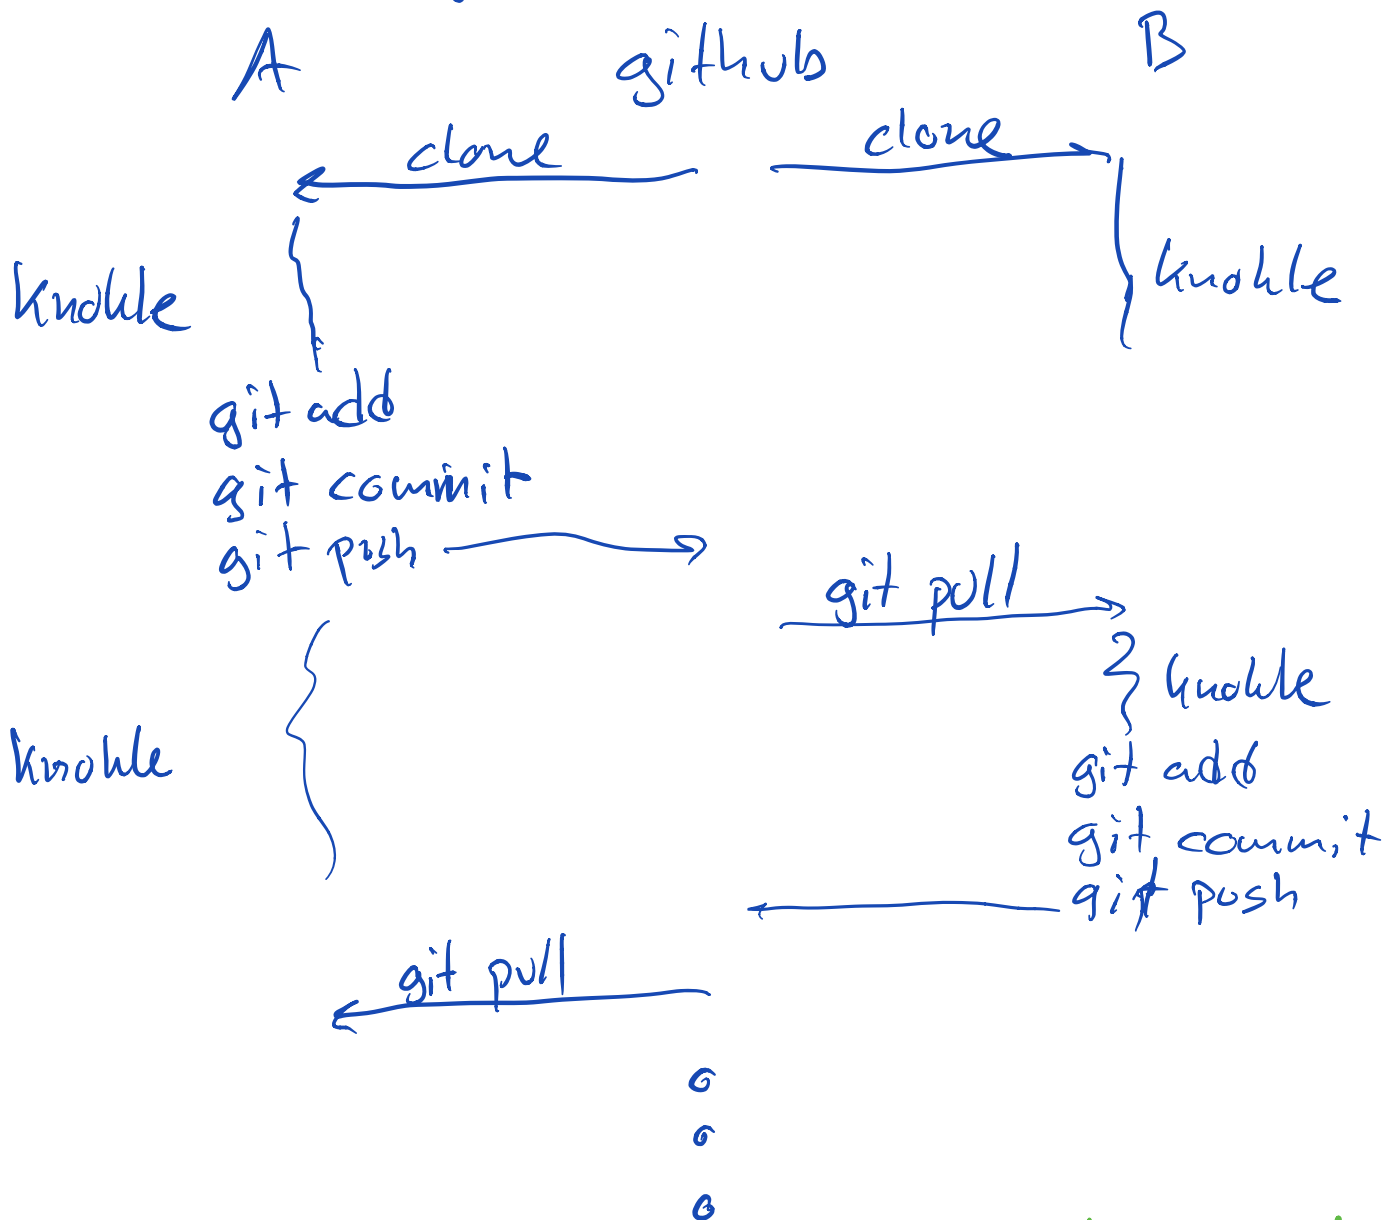 A github B
clone clone
knokle knokle
git add
git commit
git push
git pull
knokle
knokle
git add
git commit
git push
git pull